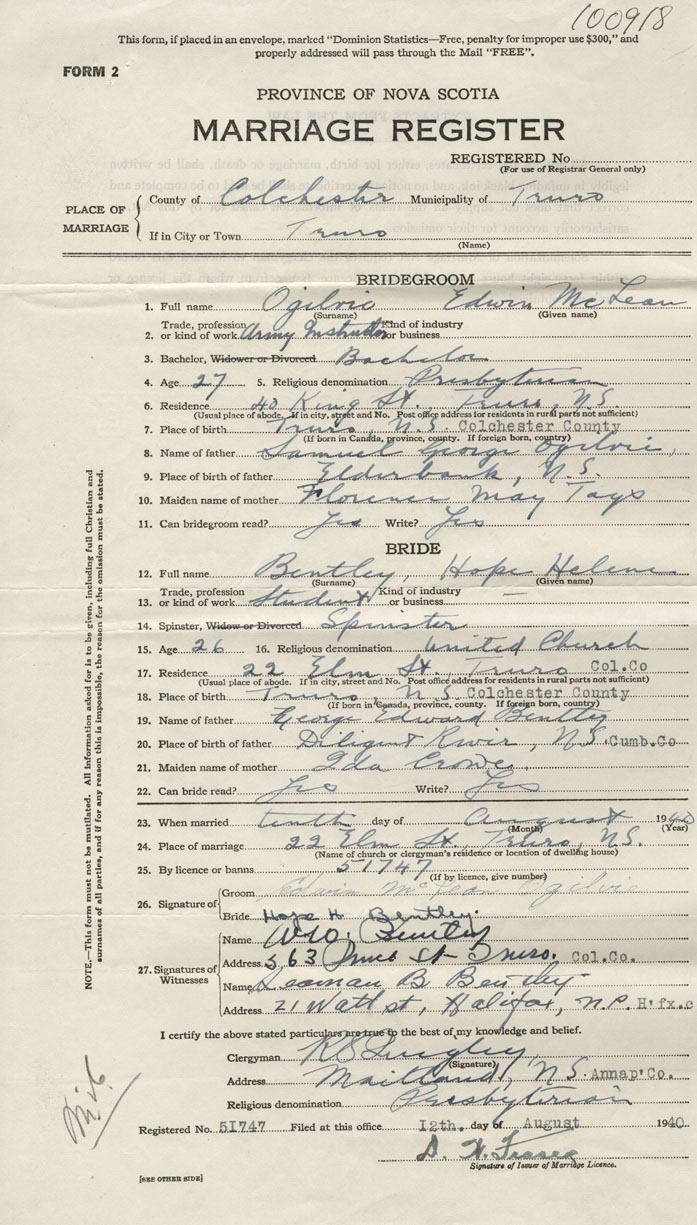 100918
This form, if placed in an envelope, marked "Dominion Statistics—Free, penalty for improper use $300," and
properly addressed will pass through the Mail "FREE".
FORM 2
PROVINCE OF NOVA SCOTIA
MARRIAGE REGISTER
REGISTERED No.
(For use of Registrar General only)
PLACE OF MARRIAGE
County of Colchester Municipality of Truro
If in City or Town Truro
(Name)
BRIDEGROOM
1. Full name Ogilvie Edwin McLean
(Surname) (Given name)
2. Trade, profession or kind of work Army Instructor Kind of industry or business
3. Bachelor, Widower or Divorced Bachelor
4. Age 27 5. Religious denomination Presbyterian
6. Residence 40 King St., Truro, N.S.
(Usual place of abode. If in city, street and No. Post office address for residents in rural parts not sufficient)
7. Place of birth Truro, N.S. Colchester County
(If born in Canada, province, county. If foreign born, country)
8. Name of father Samuel George Ogilvie,
9. Place of birth of father Elderbank, N.S.
10. Maiden name of mother Florence May Tays
11. Can bridegroom read? Yes Write? Yes
BRIDE
12. Full name Bentley, Hope Helene
(Surname) (Given name)
13. Trade, profession or kind of work Student Kind of industry or business —
14. Spinster, Widow or Divorced Spinster
15. Age 26 16. Religious denomination United Church
17. Residence 22 Elm St., Truro Col.Co
(Usual place of abode. If in city, street and No. Post office address for residents in rural parts not sufficient)
18. Place of birth Truro, N.S. Colchester County
(If born in Canada, province, county. If foreign born, country)
19. Name of father George Edward Bentley
20. Place of birth of father Diligent River, N.S. Cumb.Co
21. Maiden name of mother Ida Crowe.
22. Can bride read? Yes Write? Yes
23. When married tenth day of August 1940
(Month) (Year)
24. Place of marriage 22 Elm St., Truro, N.S.
(Name of church or clergyman's residence or location of dwelling house)
25. By licence or banns 51747
(If by licence, give number)
26. Signature of
Groom Edwin McLean Ogilvie
Bride Hope H. Bentley.
27. Signatures of Witnesses
Name Bentley
Address 563 St- Truro. Col.Co.
Name Leaman B Bentley
Address 21 Watt st, Halifax, H'fx.c
I certify the above stated particulars are true to the best of my knowledge and belief.
Clergyman
(Signature)
Address Maitland, N.S. Annap'Co.
Religious denomination Presbyterian
Registered No. 51747 Filed at this office 12th. day of August 1940
Signature of Issuer of Marriage Licence.
[SEE OTHER SIDE]
NOTE.—This form must not be mutilated. All information asked for is to be given, including full Christian and
surnames of all parties, and if for any reason this is impossible, the reason for the omission must be stated.